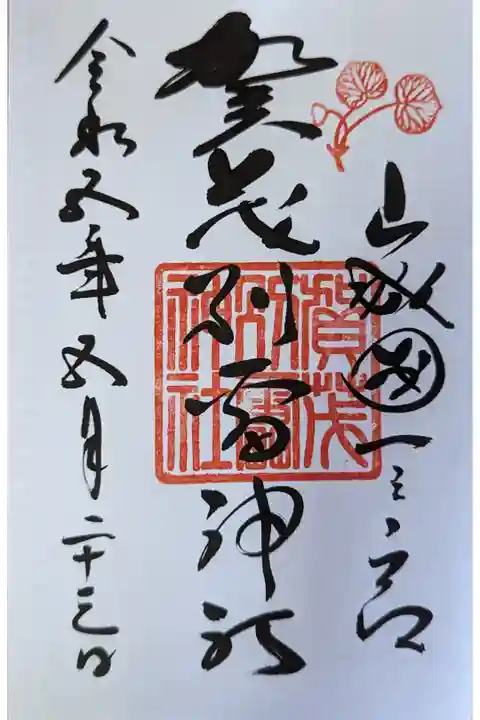 山城國一之宮
賀茂別雷神社
賀茂別雷神社
令和五年五月二十三日